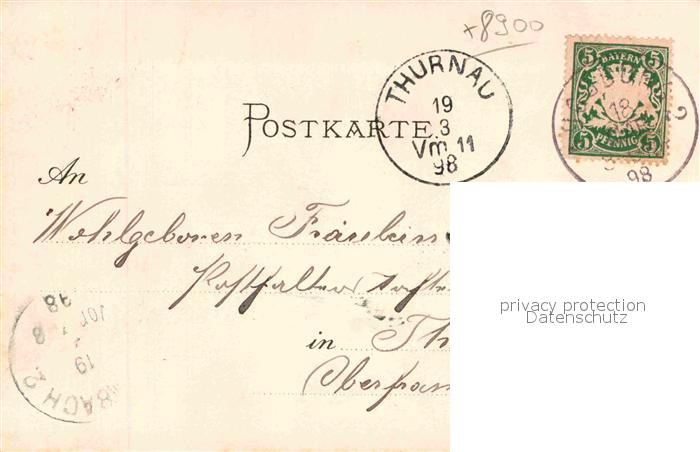 +8900
THURNAU
19
3
Vm 11
98
5 5
BAYERN
5 5
PFENNIG
18
98
2
POSTKARTE.
An
Wohlgeboren Fräulein
Posthalters
in Th
Oberfran
BACH 2
19
8
98
privacy protection
Datenschutz